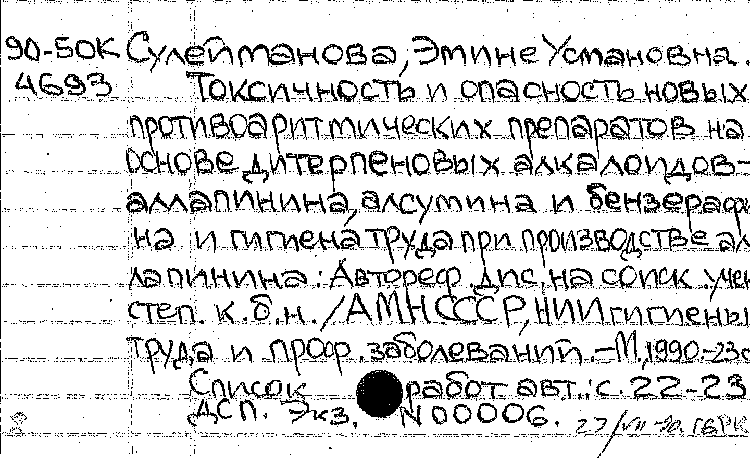 90-50К Сулейманова, Эмине Усмановна.
4693 Токсичность и опасность новых
противоаритмических препаратов на
основе дитерпеновых алкалоидов-
аллапинина, алсутмина и бензерафи
на и гигиена труда при производстве ал
лапинина: Автореф. дис. на соиск. учен
степ. к.б.н. / АМН СССР, НИИ гигиены
труда и проф. заболеваний.-М., 1990-23с
Список работ авт.: с. 22-23
ДСП. Экз. N 00006.